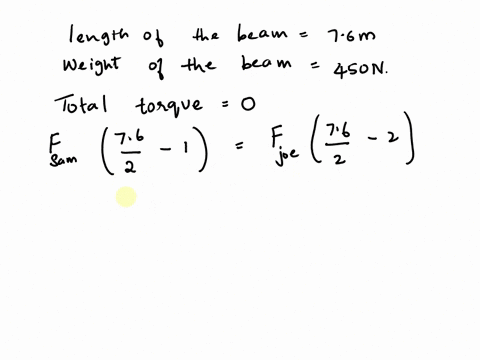 length of the beam = 7.6m
Weight of the beam = 450N.
Total torque = 0
F_Sam (7.6/2 - 1) = F_joe (7.6/2 - 2)